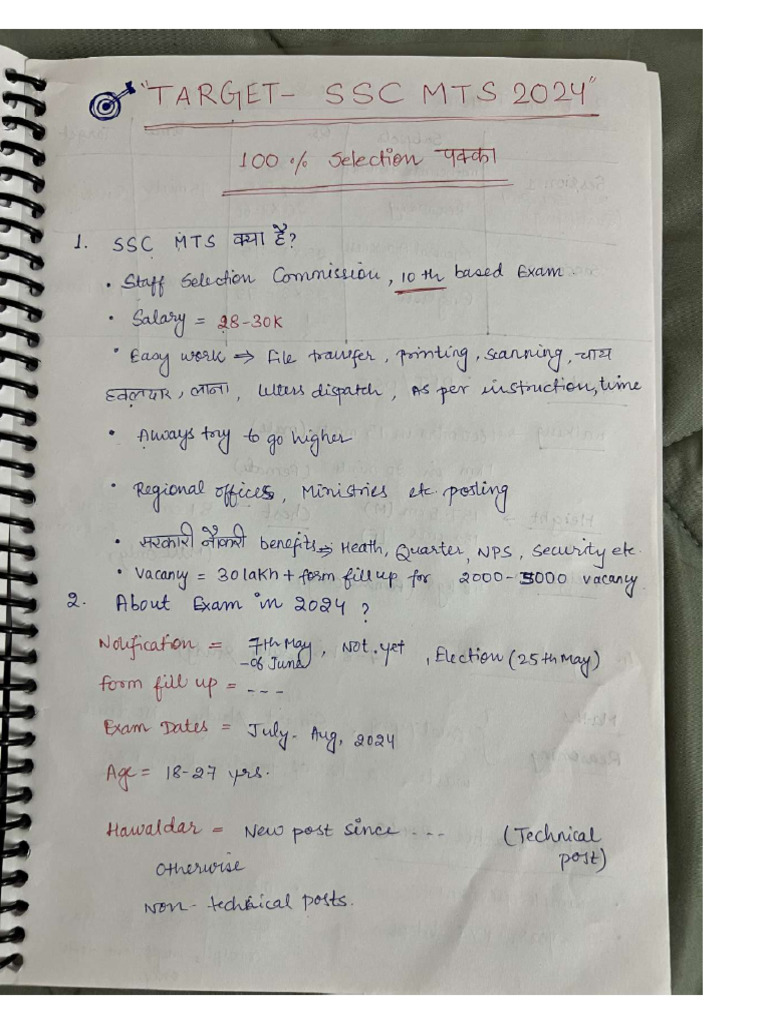 "TARGET- SSC MTS 2024"
100 % Selection पक्का
1. SSC MTS क्या है?
• Staff Selection Commission, 10th based Exam.
• Salary = 28-30K
• Easy work ⇒ File transfer, printing, scanning, चाय
हवलदार, लाना, letters dispatch, As per instruction, time
• Always try to go higher
• Regional offices, Ministries etc. posting
• सरकारी नौकरी benefits ⇒ Heath, Quarter, NPS, Security etc.
• Vacany = 30 lakh + form fill up for 2000-5000 vacany.
2. About Exam in 2024?
Notification = 7th May, Not. yet, Election (25th May)
-06 June
Form fill up = ---
Exam Dates = July- Aug, 2024
Age = 18-27 yrs.
Hawaldar = New post since --- (Technical
post)
otherwise
Non-technical posts.